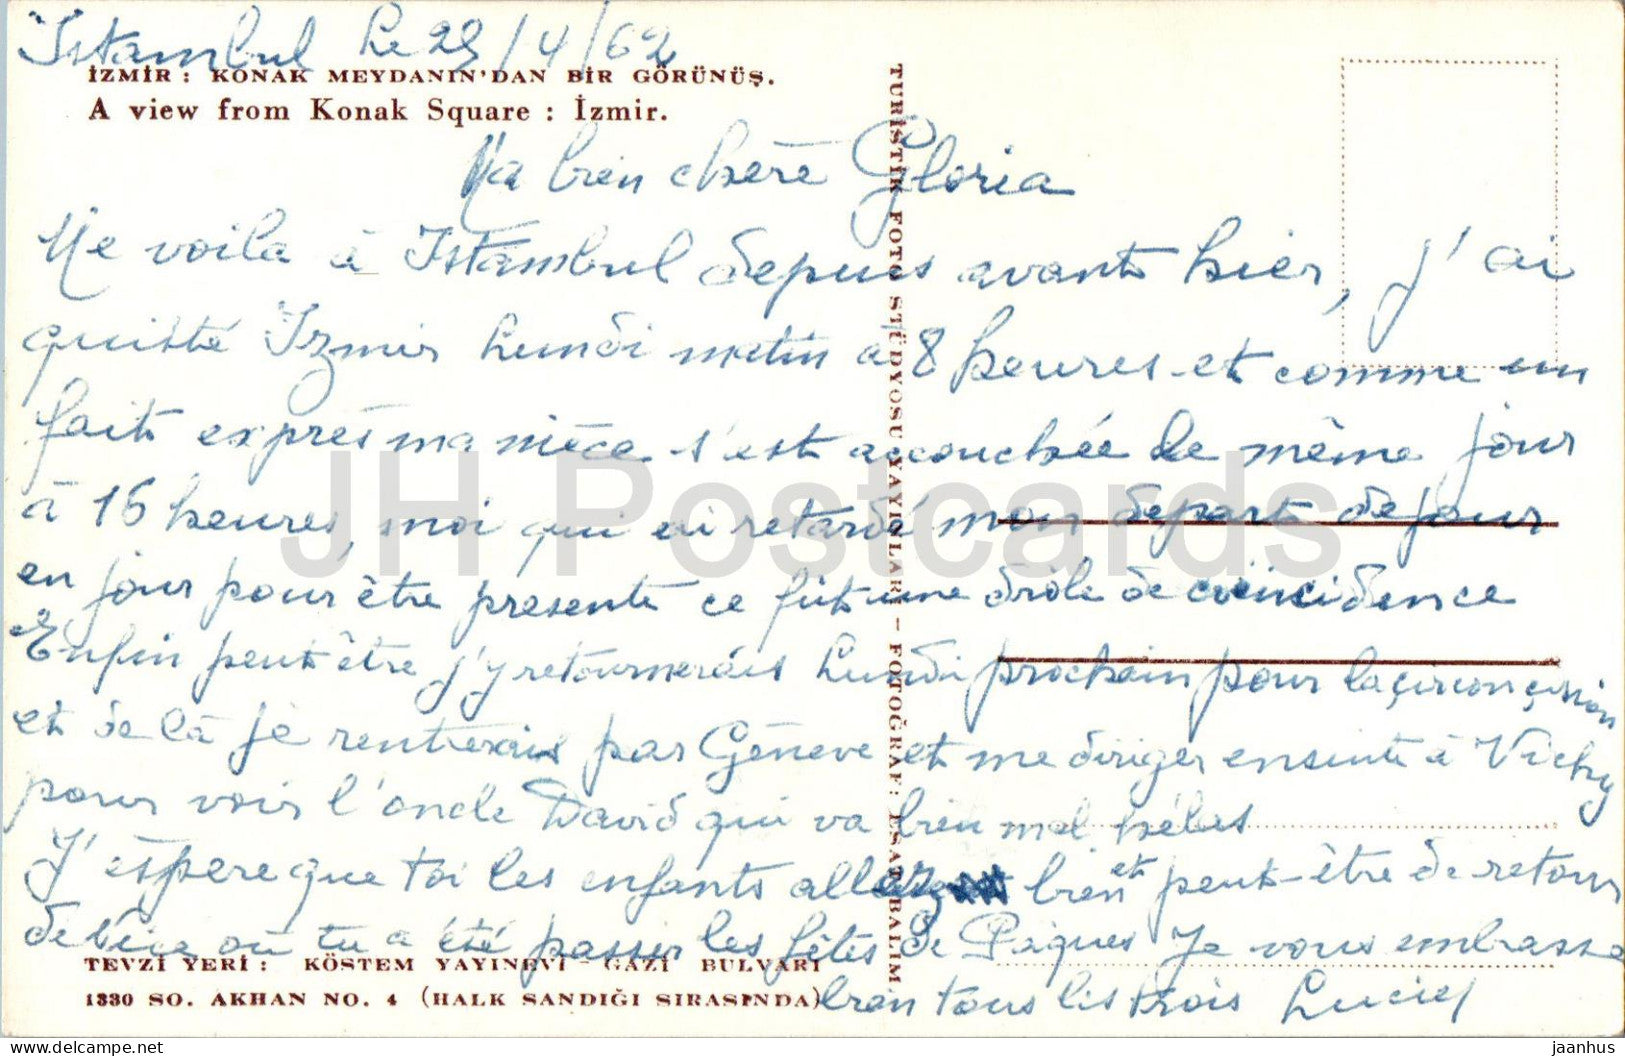 Istambul le 29/4/62
İZMİR : KONAK MEYDANIN'DAN BİR GÖRÜNÜŞ.
A view from Konak Square : İzmir.
Ma bien chère Gloria
Me voila à Istambul depuis avant hier, j'ai
quitté Izmir Lundi matin à 8 heures et comme un
fait exprès ma nièce s'est accouchée le même jour
à 16 heures, moi qui ai retardé mon départ de jour
en jour pour être présente ce fut une drôle de coïncidence
Enfin peut-être j'y retournerais Lundi prochain pour la circoncision
et de là je rentrerais par Génève et me diriger ensuite à Vichy
pour voir l'oncle David qui va bien mal hélas
J'espère que toi les enfants allez bien et peut-être de retour
de Nice où tu a été passer les fêtes de Pâques Je vous embrasse
bien tous les trois Lucie
TEVZİ YERİ : KÖSTEM YAYINEVİ - GAZİ BULVARI
1330 SO. AKHAN NO. 4 (HALK SANDIĞI SIRASINDA)
TURİSTİK FOTO STÜDYOSU YAYINLARI - FOTOĞRAF: ESAT BALIM
JH Postcards
jaanhus
delcampe.net